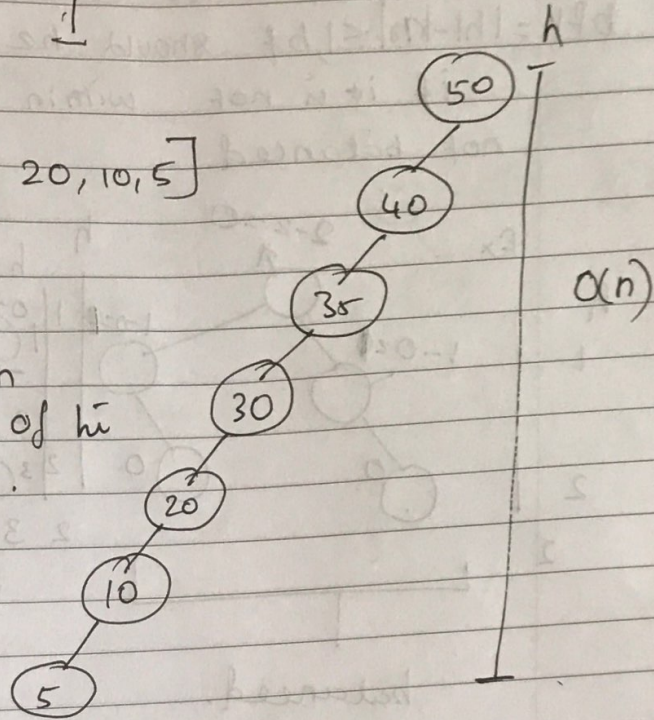 h
50
20, 10, 5]
40
35
O(n)
30
of hi
20
10
5